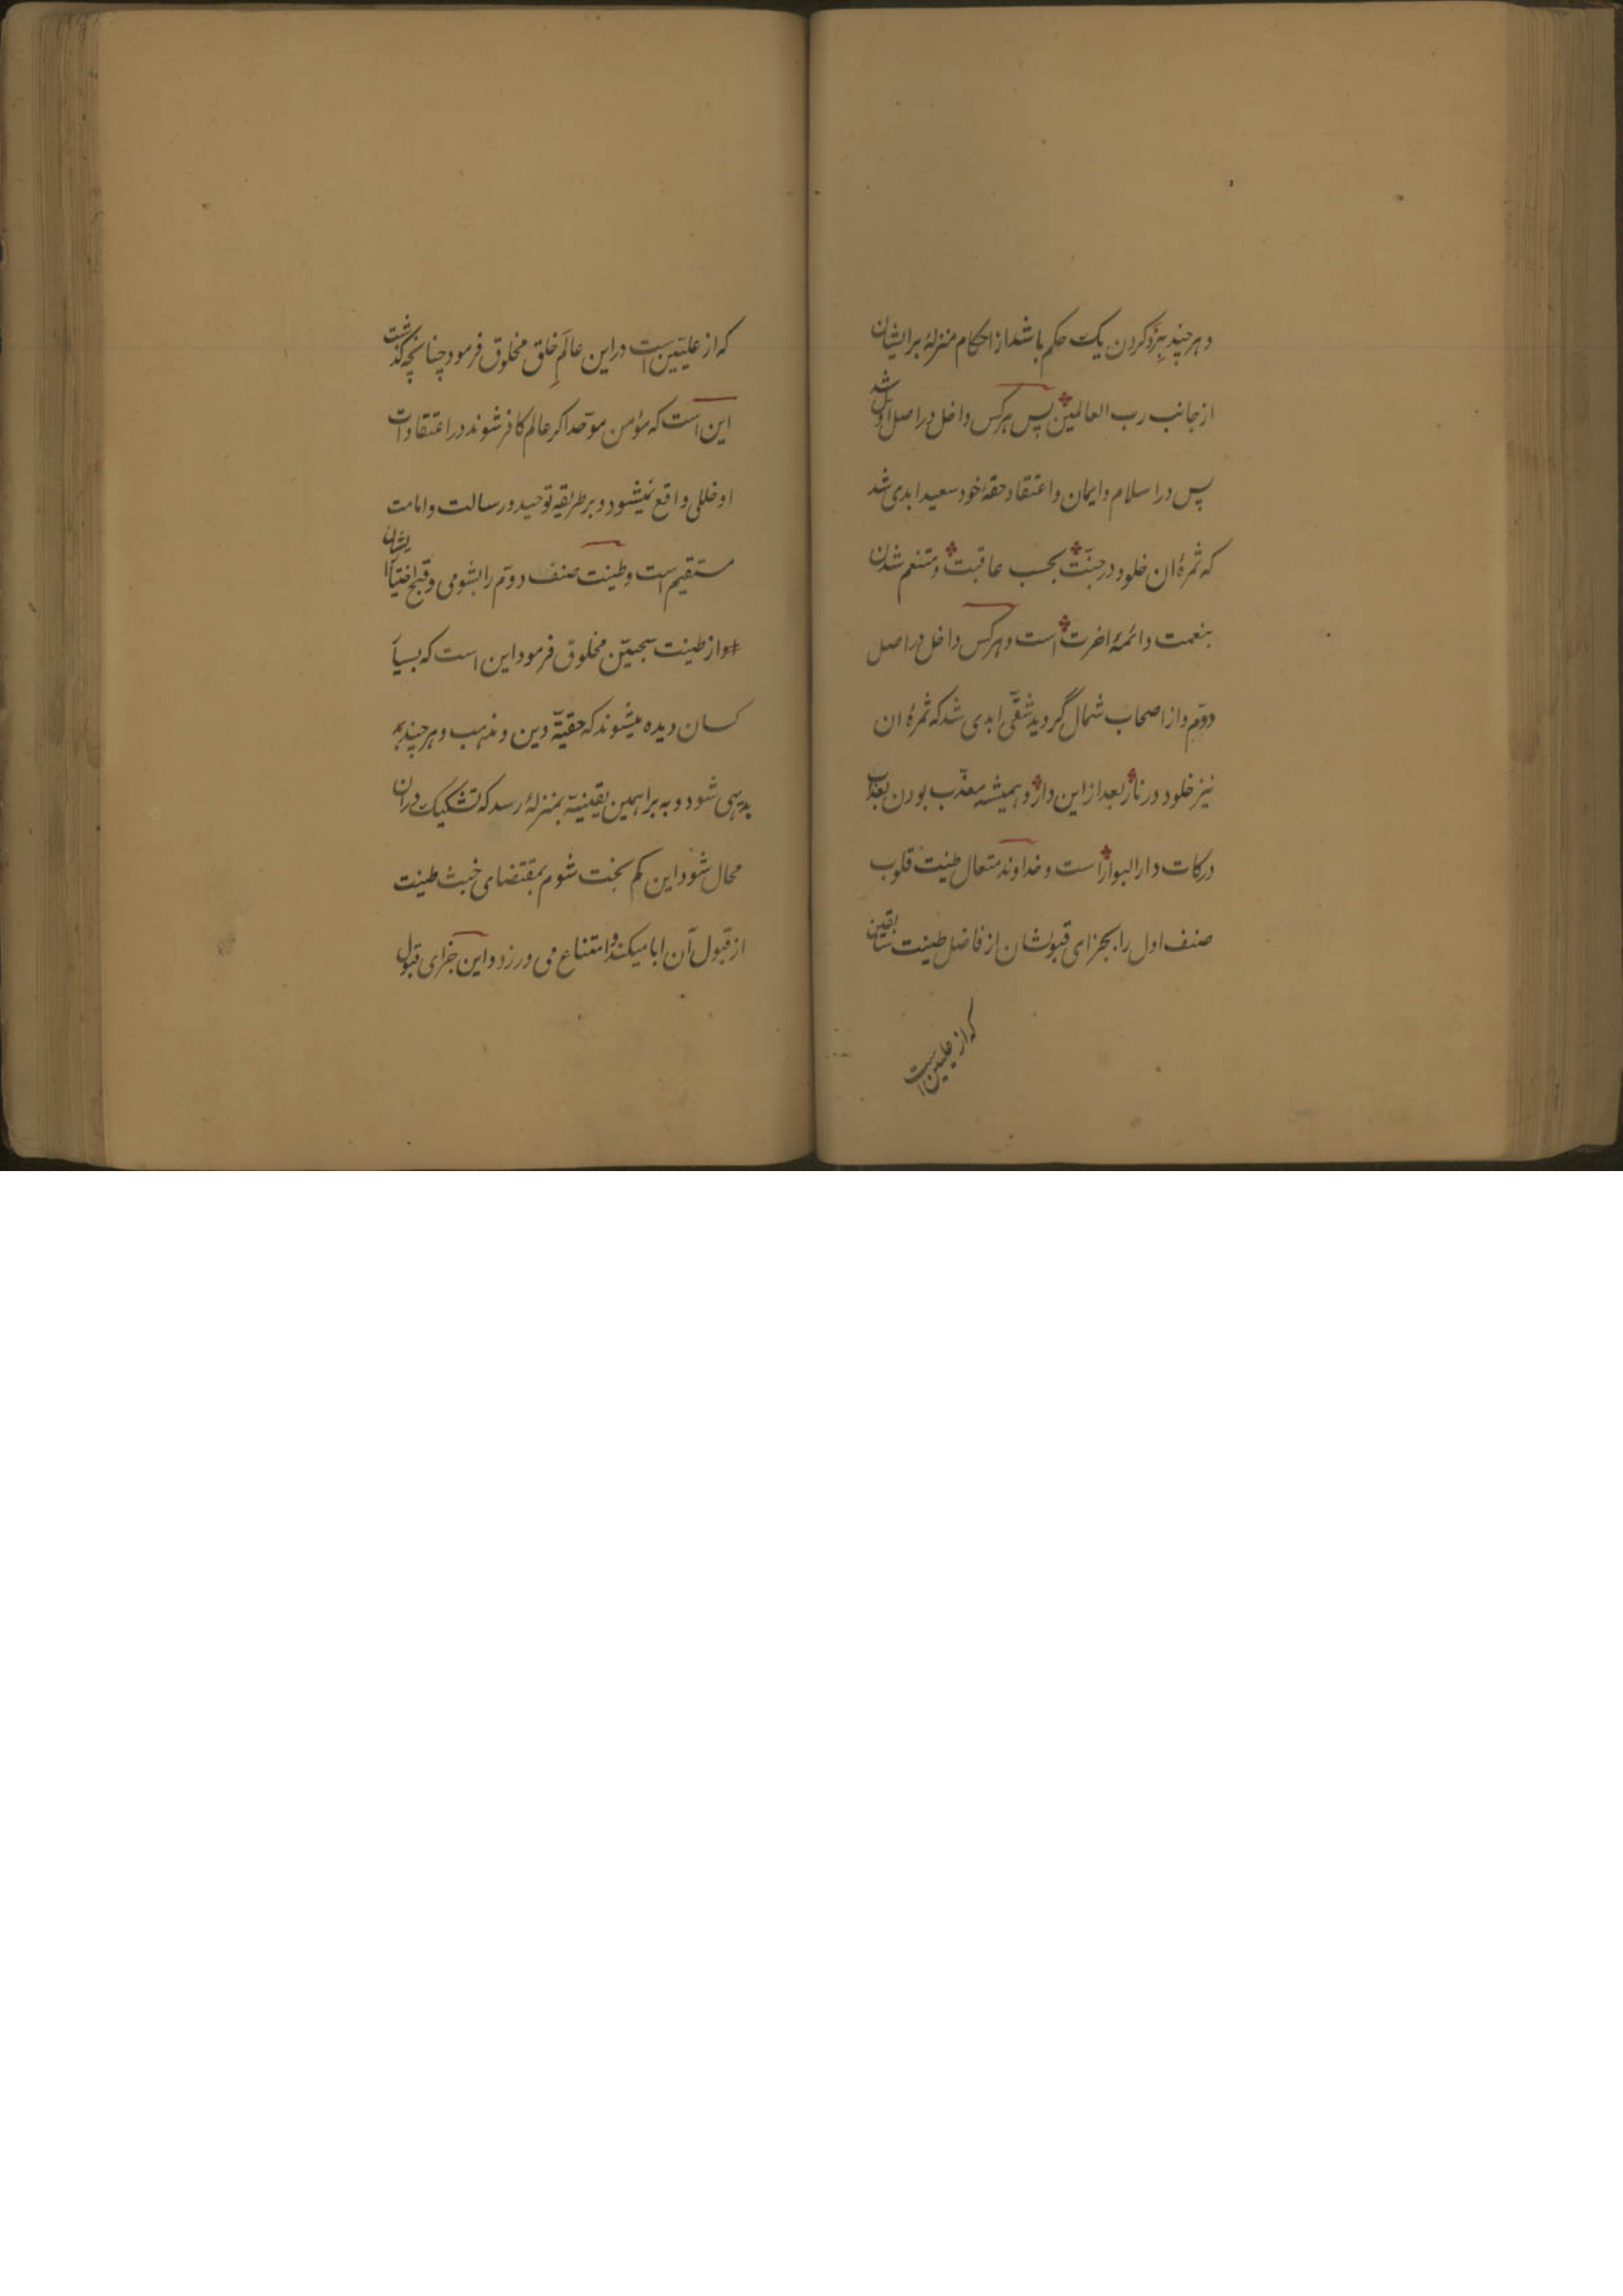 و هر چند برد کردن یک حکم باشد از احکام منزلهٔ برایشان
از جانب رب العالمین پس هر کس داخل در اصل اول شد
پس در اسلام و ایمان و اعتقاد حقهٔ خود سعید ابدی شد
که ثمرهٔ ان خلود در جنّت بحسب عاقبت و متنعم شدن
بنعمت دائمهٔ اخرت است و هر کس داخل در اصل
دوّم و از اصحاب شمال گردید شقّی ابدی شد که ثمرهٔ ان
نیز خلود در نار بعد از این دار و همیشه معذّب بودن بعذاب
درکات دار البوار است و خداوند متعال طینت قلوب
صنف اول را بجزای قبولشان از فاضل طینت سابقین
که از علیین است
که از علیّین است در این عالَمِ خلق مخلوق فرمود چنانچه گذشت
این است که مؤمن موحّد اکر عالم کافر شوند در اعتقادات
او خللی واقع نمیشود و بر طریقه توحید و رسالت و امامت
مستقیم است و طینت صنف دوّم را بشومی و قبح اختیارایشان
از طینت سجیّن مخلوق فرمود این است که بسیار
کسان دیده میشوند که حقیّة دین و مذهب و هر چند به
بدیهی شود و به براهین یقینیّة بمنزلهٔ رسد که تشکیک در ان
محال شود این کم بخت شوم بمقتضای خبث طینت
از قبول آن ابا میکند و امتناع می ورزد و این جزای قبول